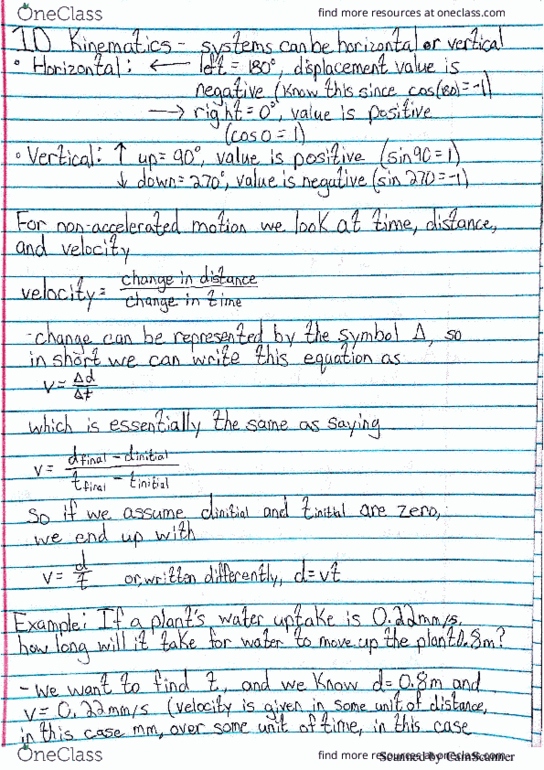 OneClass
find more resources at oneclass.com
1D Kinematics - systems can be horizontal or vertical
• Horizontal: ← left = 180°, displacement value is
negative (know this since cos(180)=-1)
→ right = 0°, value is positive
(cos 0 = 1)
• Vertical: ↑ up = 90°, value is positive (sin 90 = 1)
↓ down = 270°, value is negative (sin 270 = -1)
For non-accelerated motion we look at time, distance,
and velocity
velocity = change in distance
change in time
- change can be represented by the symbol Δ, so
in short we can write this equation as
v = Δd
Δt
which is essentially the same as saying
v = dfinal - dinitial
tfinal - tinitial
So if we assume dinitial and tinitial are zero,
we end up with
v = d/t or, written differently, d=vt
Example: If a plant's water uptake is 0.22mm/s,
how long will it take for water to move up the plant 0.8m?
- We want to find t, and we know d = 0.8m and
v = 0.22mm/s (velocity is given in some unit of distance,
in this case mm, over some unit of time, in this case
OneClass
find more resources at oneclass.com
Scanned by CamScanner